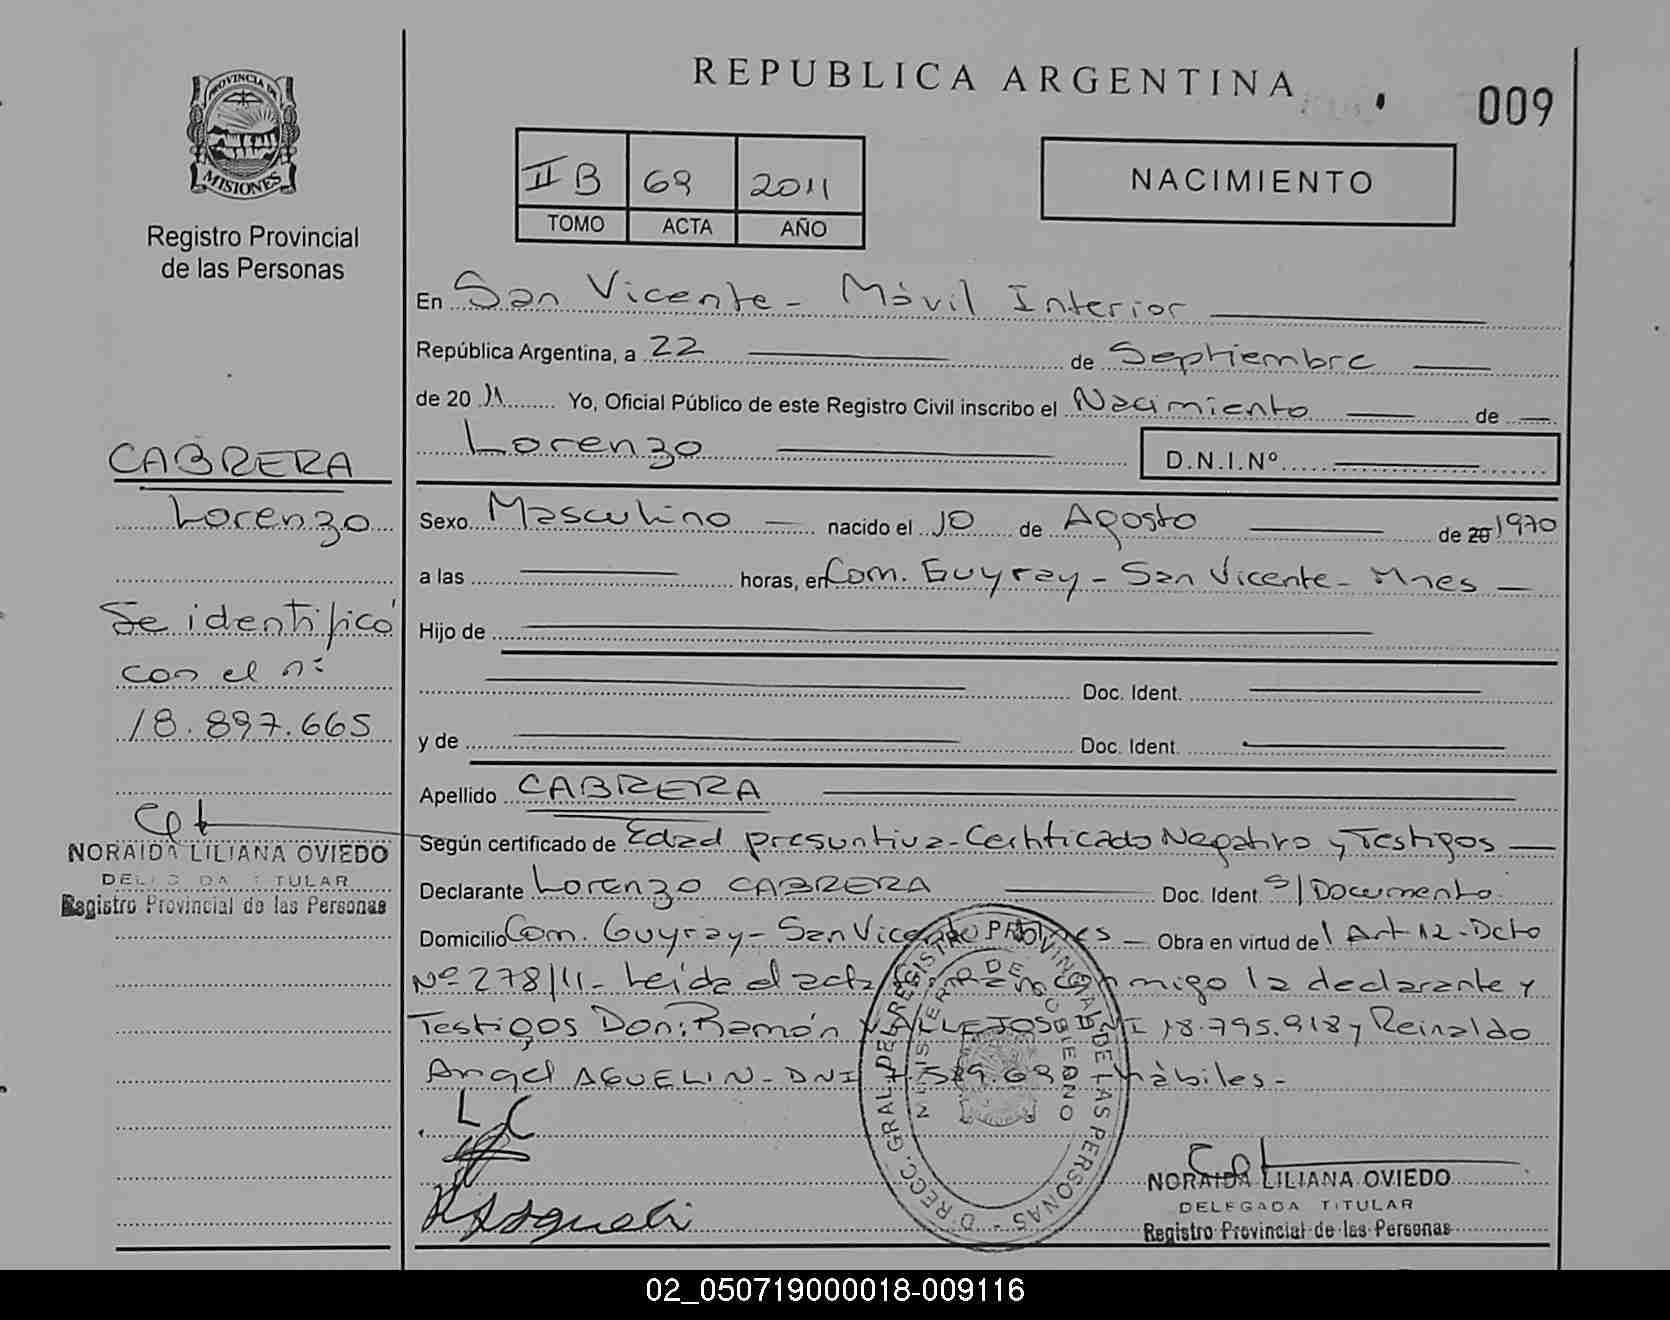 REPUBLICA ARGENTINA
009
PROVINCIA DE
MISIONES
Registro Provincial
de las Personas
II B 69 2011
TOMO ACTA AÑO
NACIMIENTO
En San Vicente - Móvil Interior
República Argentina, a 22 de Septiembre
de 20 11 Yo, Oficial Público de este Registro Civil inscribo el Nacimiento de
Lorenzo D.N.I.Nº
CABRERA
Lorenzo
Se identificó
con el nº
18.897.665
NORAIDA LILIANA OVIEDO
DELEGADA TITULAR
Registro Provincial de las Personas
Sexo Masculino nacido el 10 de Agosto de 20 1970
a las horas, en Com. Guyray - San Vicente - Mnes
Hijo de
Doc. Ident.
y de Doc. Ident.
Apellido CABRERA
Según certificado de Edad presuntiva - Certificado Negativo y Testigos
Declarante Lorenzo CABRERA Doc. Ident. S/Documento
Domicilio Com. Guyray - San Vicente Mnes Obra en virtud del Art 12 - Dcto
Nº 278/11 - Leída el acta conmigo la declarante y
Testigos Don: Ramón VALLEJOS DNI 18.795.918 y Reinaldo
Angel AGUELIN - DNI hábiles -
L C
DIRECC. GRAL. DEL REGISTRO PROVINCIAL DE LAS PERSONAS
MINISTERIO DE GOBIERNO
NORAIDA LILIANA OVIEDO
DELEGADA TITULAR
Registro Provincial de las Personas
02_050719000018-009116